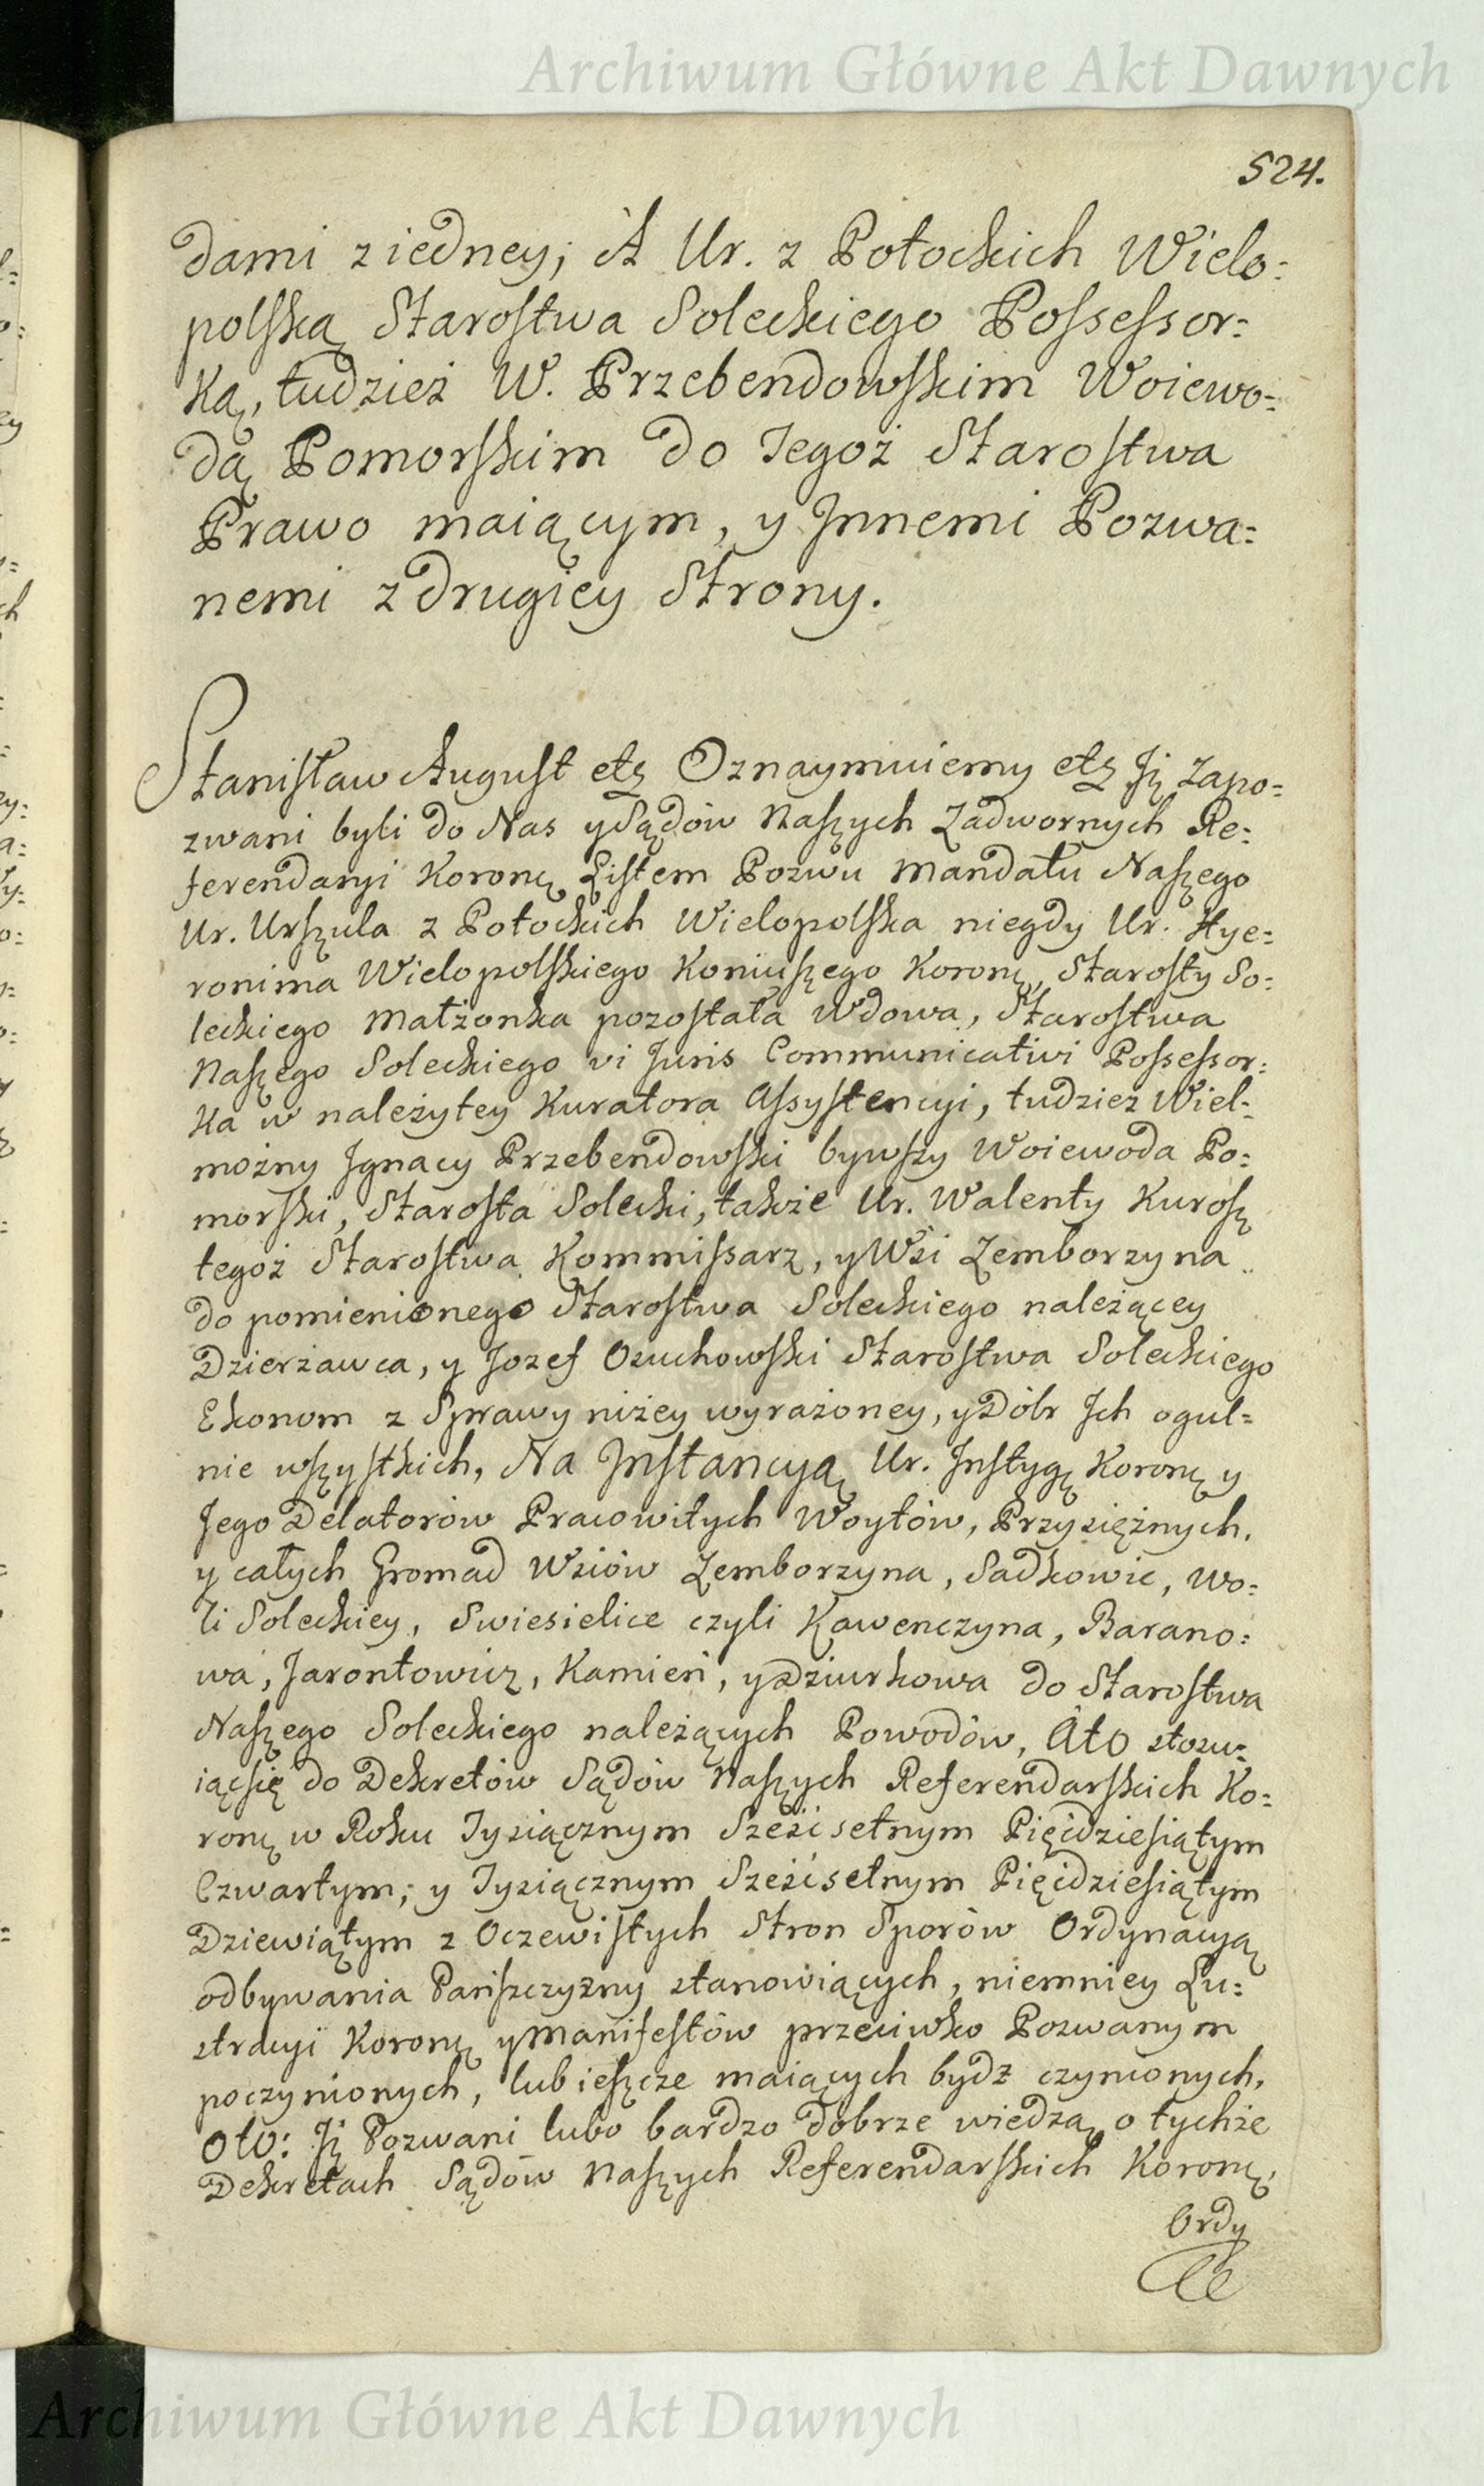 Archiwum Główne Akt Dawnych
524.
dami z iedney; A Ur. z Potockich Wielo=
polską Starostwa Soleckiego Possessor=
ką, tudzież W. Przebendowskim Woiewo=
dą Pomorskim do Tegoż Starostwa
Prawo maiącym, y Innemi Pozwa=
nemi z drugiey Strony.
Stanisław August etc Oznaymuiemy etc Iż zapo=
zwani byli do Nas y Sądów Naszych Zadwornych Re=
ferendaryi Koronę Listem Pozwu Mandatu Naszego
Ur. Urszula z Potockich Wielopolska niegdy Ur. Hye=
ronima Wielopolskiego Koniuszego Koronę, Starosty So=
leckiego Małżonka pozostała Wdowa, Starostwa
Naszego Soleckiego vi Juris Communicativi Possessor=
ka w należytey Kuratora Assystencyi, tudzież Wiel=
możny Ignacy Przebendowski bywszy Woiewoda Po=
morski, Starosta Solecki, także Ur. Walenty Kurosz
tegoż Starostwa Kommissarz, y Wsi Zemborzyna
do pomienionego Starostwa Soleckiego należącey
Dzierżawca, y Jozef Ożuchowski Starostwa Soleckiego
Ekonom z Sprawy niżey wyrażoney, y Dóbr Ich ogul=
nie wszystkich, Na Instancyą Ur. Instygę Koronę y
Jego Delatorów Pracowitych Woytów, Przysiężnych,
y całych Gromad Wsiów Zemborzyna, Sadkowic, Wo=
li Soleckiey, Swiesielice czyli Kawenczyna, Barano=
wa, Jarontowicz, Kamień, y Dziurkowa do Starostwa
Naszego Soleckiego należących Powodów, Ato stosu=
iąc się do Dekretów Sądów Naszych Referendarskich Ko=
ronę w Roku Tysiącznym Sześćsetnym Pięćdziesiątym
Czwartym; y Tysiącznym Sześćsetnym Pięćdziesiątym
Dziewiątym z Oczewistych Stron Sporów Ordynacyą
odbywania Pańszczyzny stanowiących, niemniey Lu=
stracyi Koronę y Manifestów przeciwko Pozwanym
poczynionych, lub ieszcze maiących bydź czynionych.
Oto: Iż Pozwani lubo bardzo dobrze wiedzą o tychże
Dekretach Sądów Naszych Referendarskich Koronę,
Ordy
Archiwum Główne Akt Dawnych